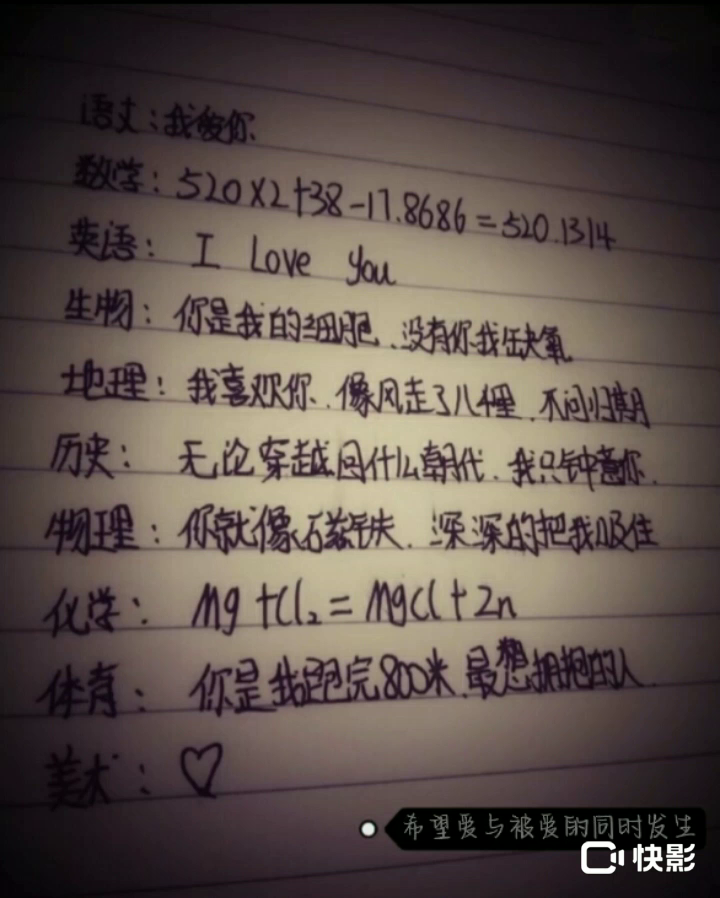 语文:我爱你
数学:520×2+38-17.8686=520.1314
英语: I Love you
生物:你是我的细胞、没有你我缺氧
地理:我喜欢你、像风走了八千里、不问归期
历史: 无论穿越回什么朝代、我只钟意你.
物理:你就像磁铁、深深的把我吸住
化学: Mg+Cl₂=MgCl+Zn
体育: 你是我跑完800米、最想拥抱的人
美术:♡
希望爱与被爱的同时发生
快影